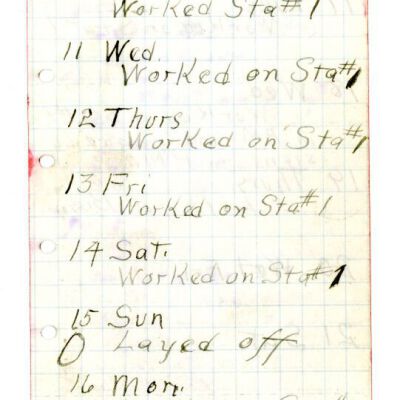 Worked Sta #1
11 Wed.
Worked on Sta#1
12 Thurs
Worked on Sta#1
13 Fri
Worked on Sta#1
14 Sat.
Worked on Sta#1
15 Sun
0 Layed off
16 Mon.